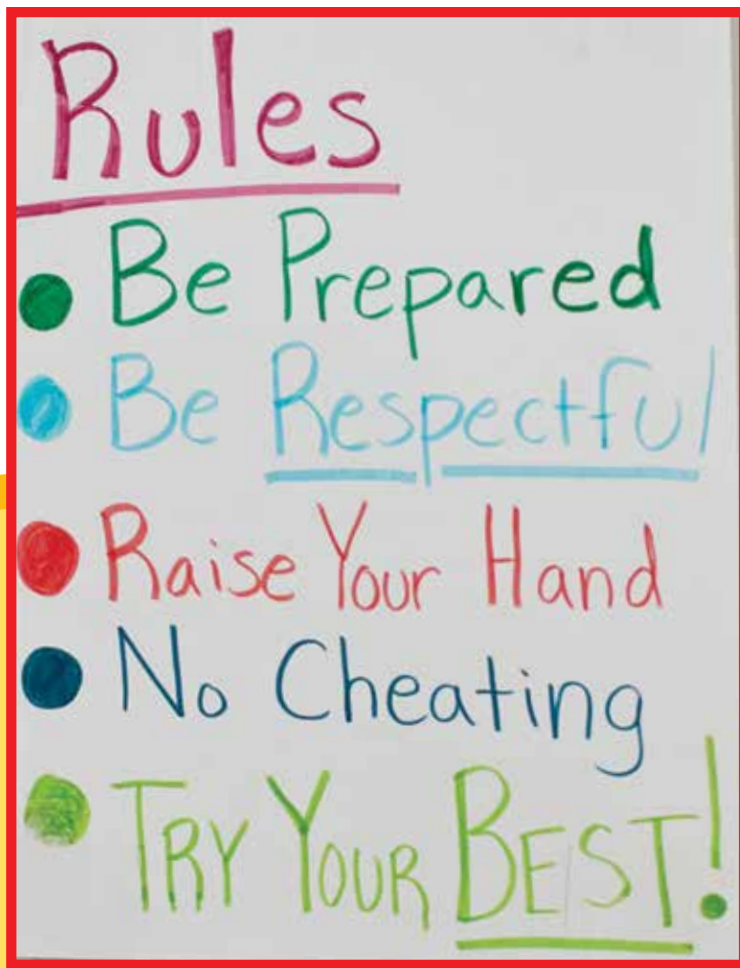 Rules
• Be Prepared
• Be Respectful
• Raise Your Hand
• No Cheating
• TRY YOUR BEST!